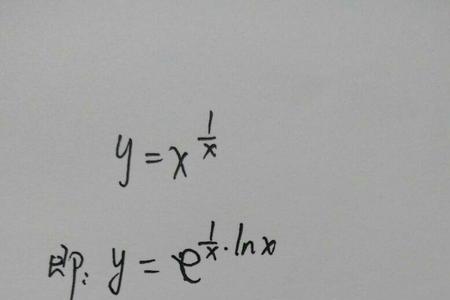 y = x^{\frac{1}{x}}
即: y = e^{\frac{1}{x} \cdot \ln x}